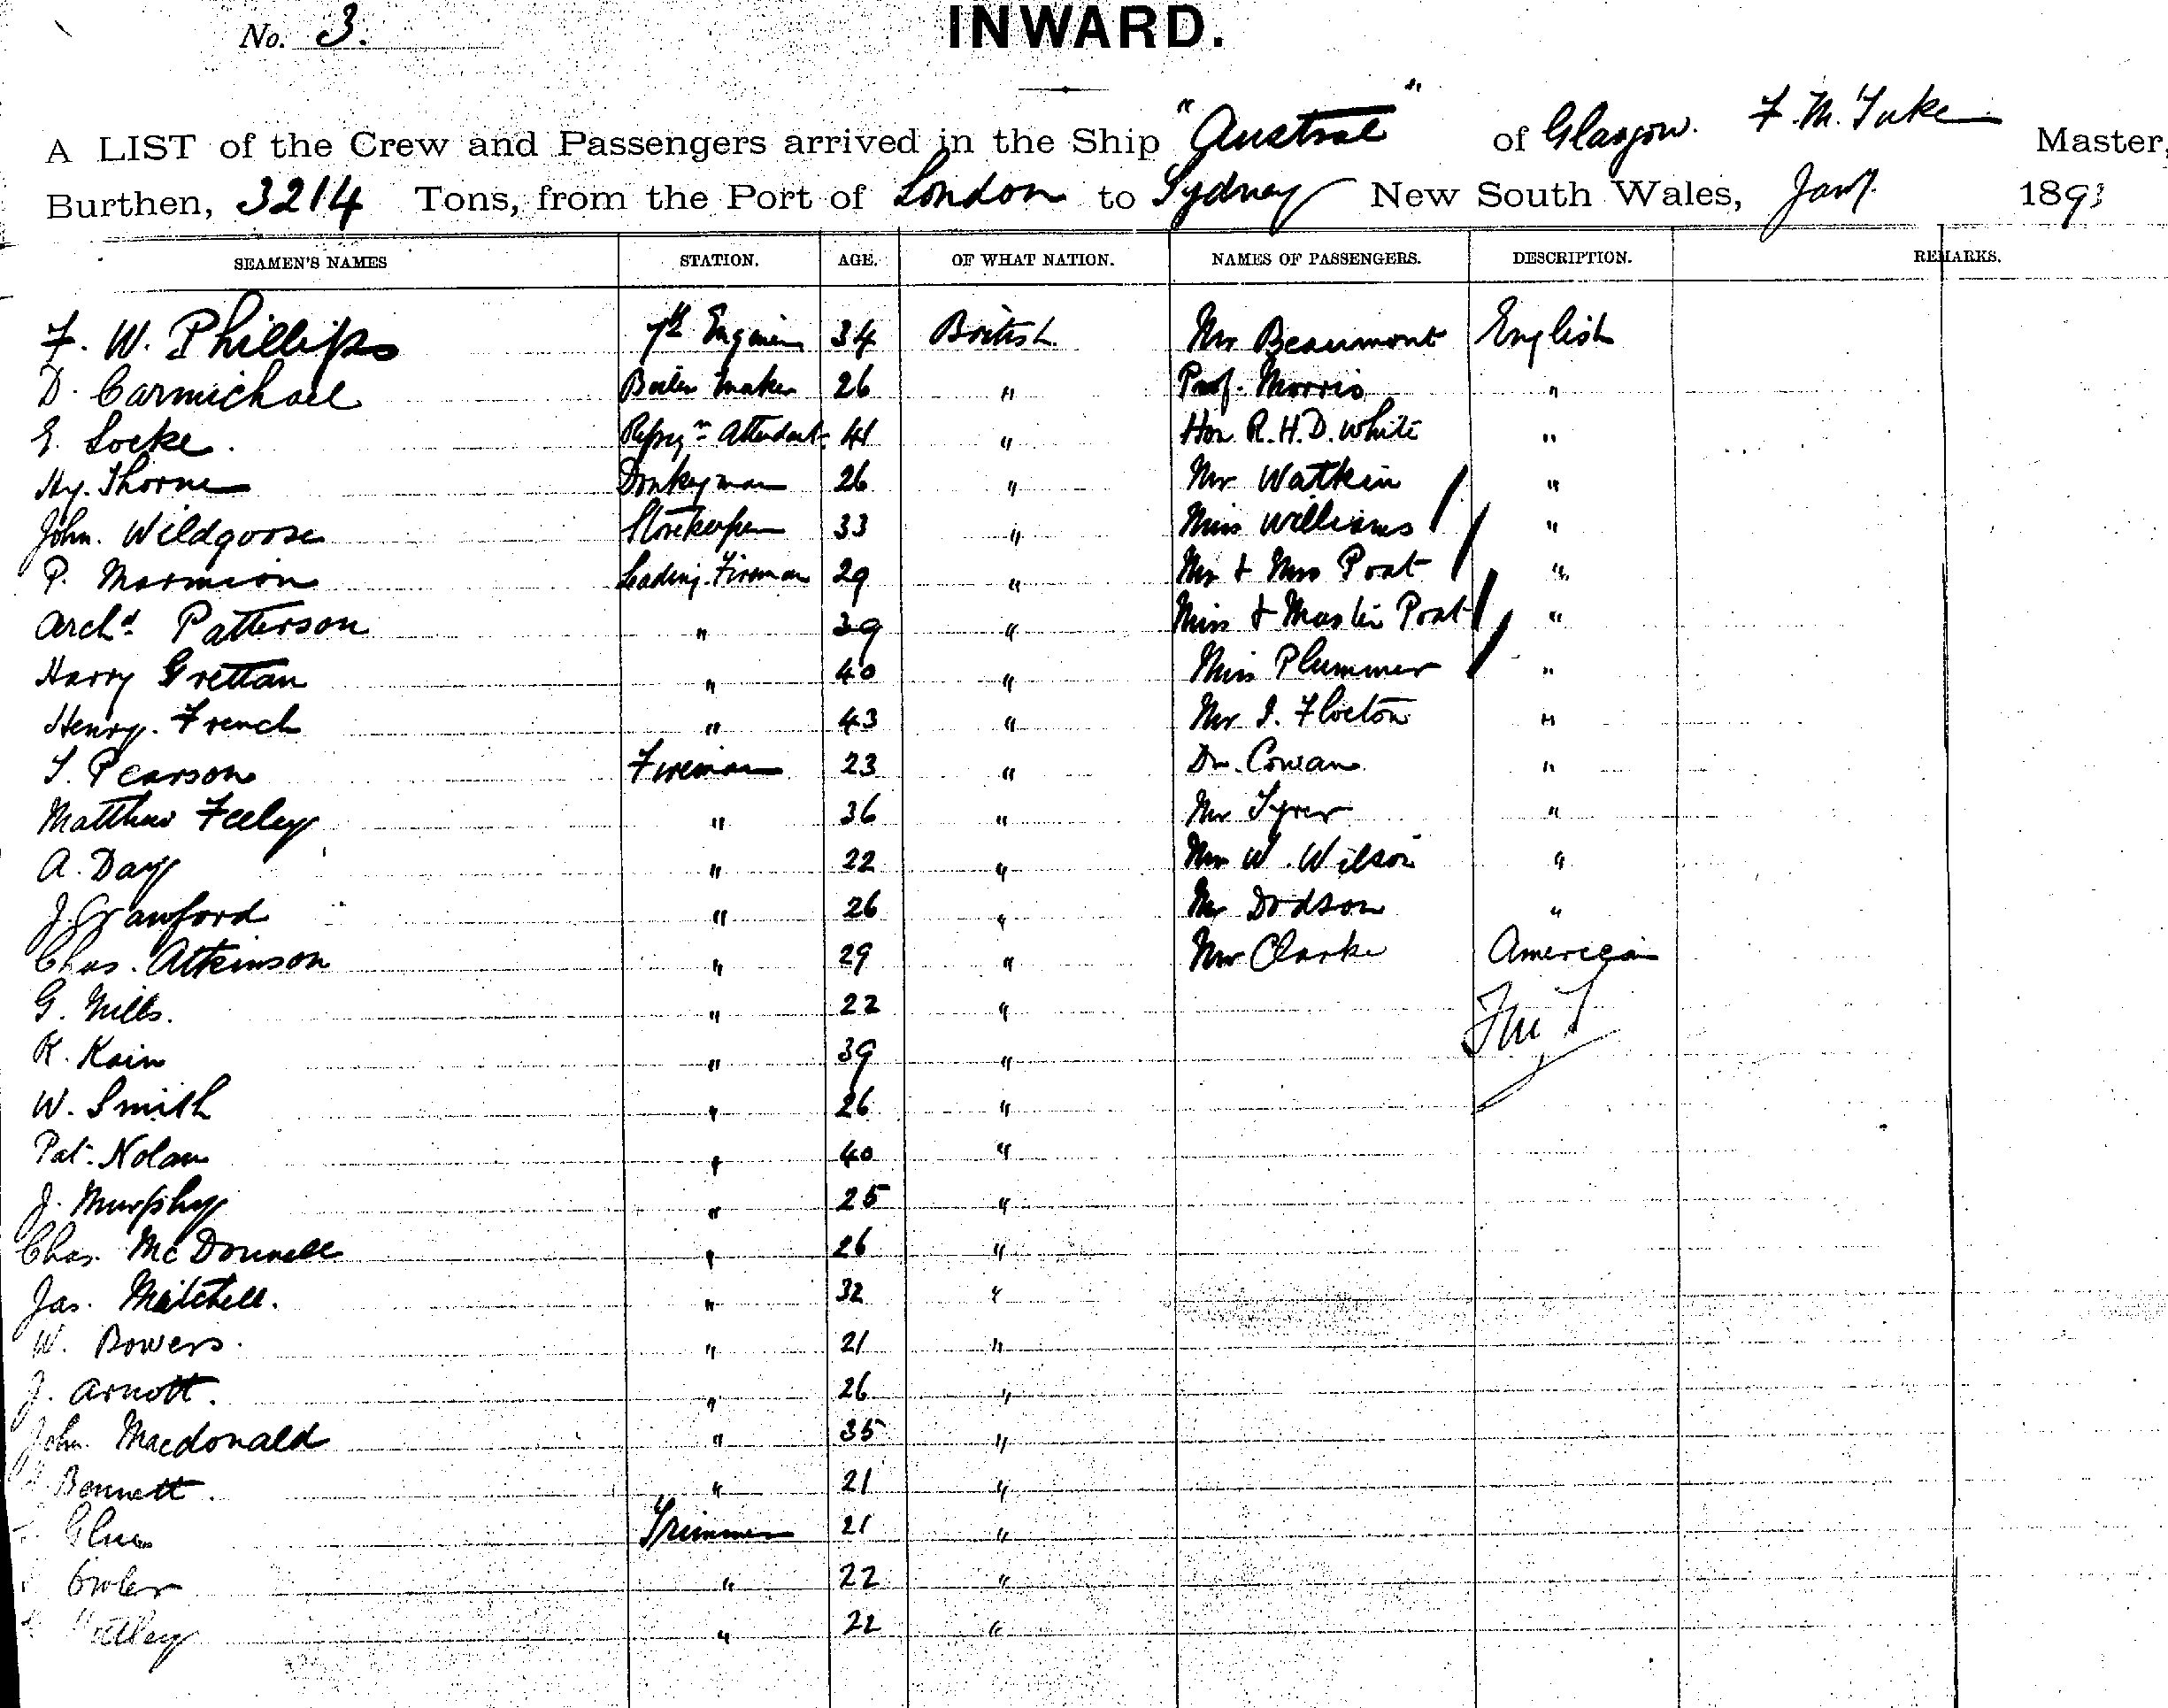 No. 3.
INWARD.
A LIST of the Crew and Passengers arrived in the Ship "Austral" of Glasgow. F. M. Tuke Master,
Burthen, 3214 Tons, from the Port of London to Sydney New South Wales, Jany. 1893
SEAMEN'S NAMES STATION. AGE. OF WHAT NATION. NAMES OF PASSENGERS. DESCRIPTION. REMARKS.
F. W. Phillips 7th Engineer 34 British Mr Beaumont English
D. Carmichael Boiler maker 26 " Prof. Morris "
E. Locke. Refrign Attendant. 41 " Hon. R. H. D. White "
Hy. Thorne Donkeyman 26 " Mr Watkin "
John. Wildgoose Storekeeper 33 " Miss Williams "
P. Marmion Leading Fireman 29 " Mr & Mrs Poat "
Archd Patterson " 39 " Miss & Master Poat "
Harry Grettan " 40 " Miss Plummer "
Henry. French " 43 " Mr I. Flocton "
T. Pearson Fireman 23 " Dr. Cowan "
Matthew Feeley " 36 " Mr Tyrer "
A. Day " 22 " Mr W. Wilson "
J. Crawford " 26 " Mr Dodson "
Chas. Atkinson " 29 " Mr Clarke American
G. Mills. " 22 "
R. Kain " 39 "
W. Smith " 26 "
Pat. Nolan " 40 "
J. Murphy " 25 "
Chas. McDonnell " 26 "
Jas. Mitchell. " 32 "
W. Bowers. " 21 "
J. Arnott. " 26 "
John. Macdonald " 35 "
Bennett. " 21 "
Trimmer 21 "
" 22 "
" 22 "